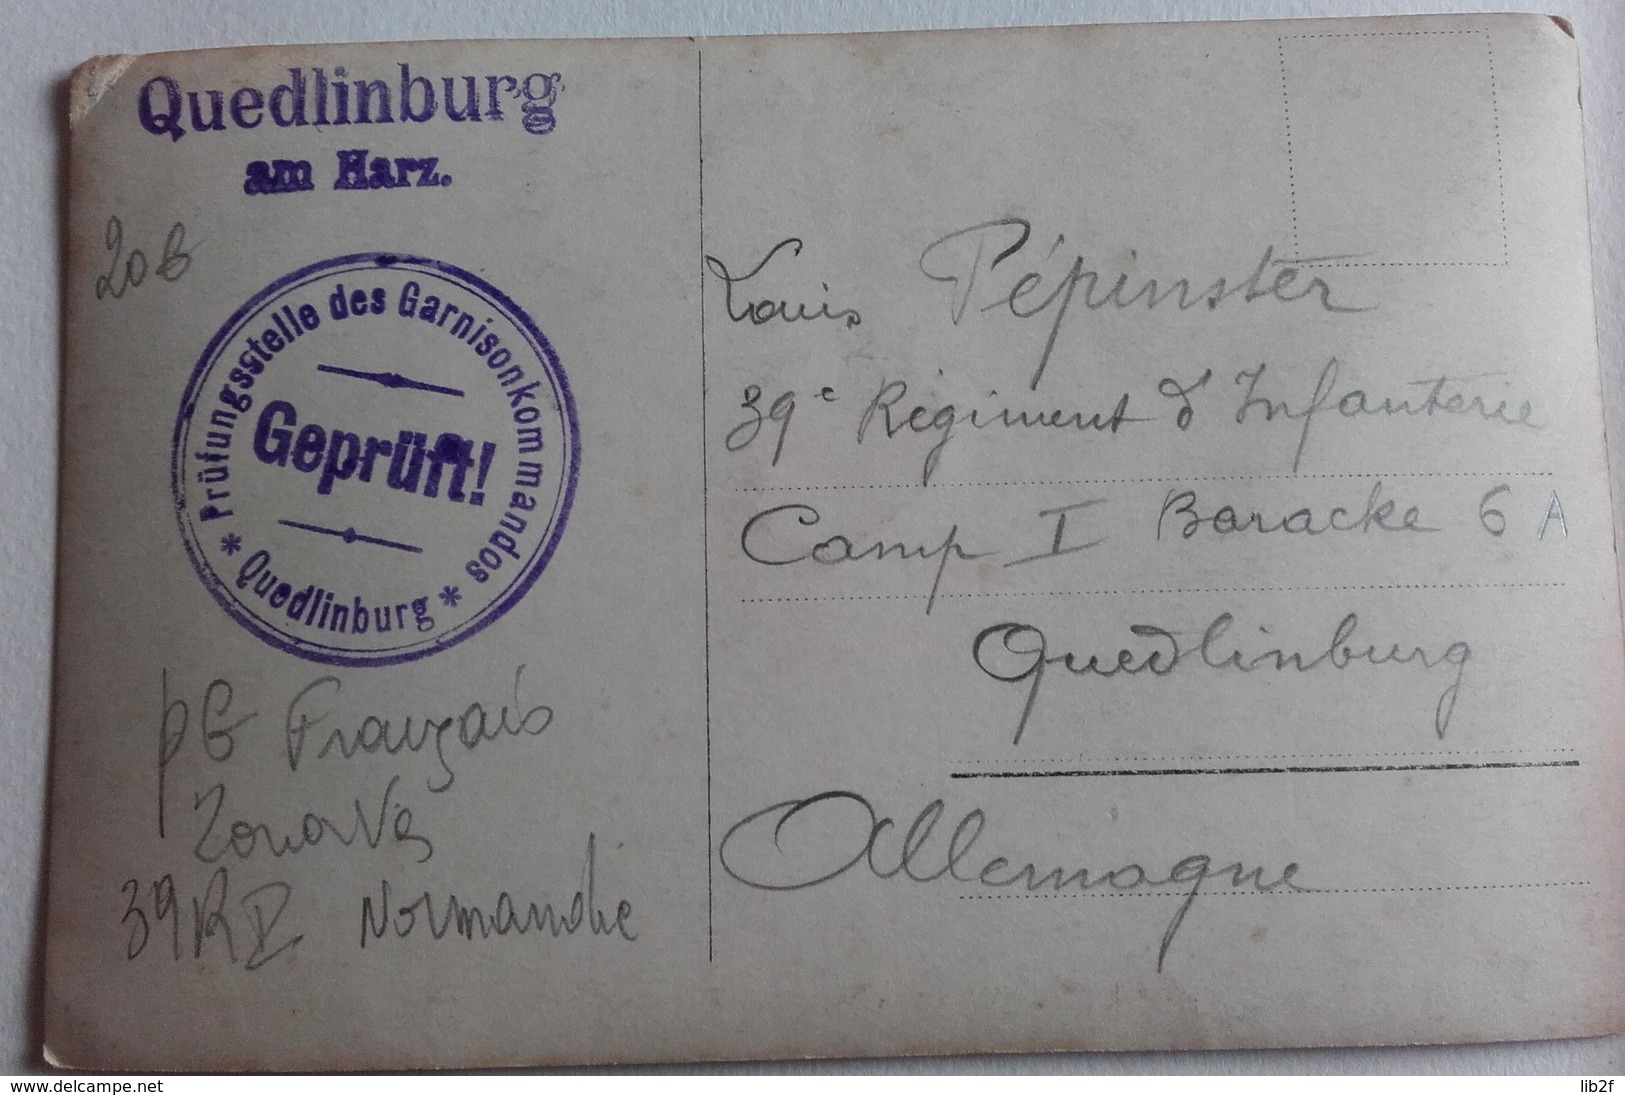 Quedlinburg
am Harz.
20 €
Prüfungsstelle des Garnisonkommandos
Geprüft!
* Quedlinburg *
PG Français
Zouaves
39 RI Normandie
Louis Pépinster
39e Régiment d'Infanterie
Camp I Baracke 6 A
Quedlinburg
Allemagne
www.delcampe.net
lib2f